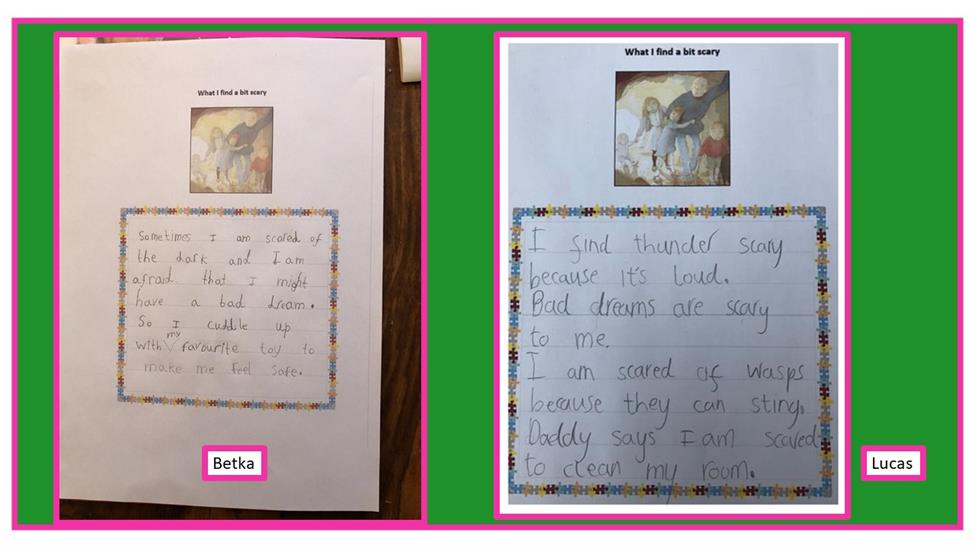 What I find a bit scary
Sometimes I am scared of
the dark and I am
afraid that I might
have a bad dream.
So I cuddle up
with my favourite toy to
make me feel safe.
Betka
What I find a bit scary
I find thunder scary
because it's loud.
Bad dreams are scary
to me.
I am scared of wasps
because they can sting.
Daddy says I am scared
to clean my room.
Lucas